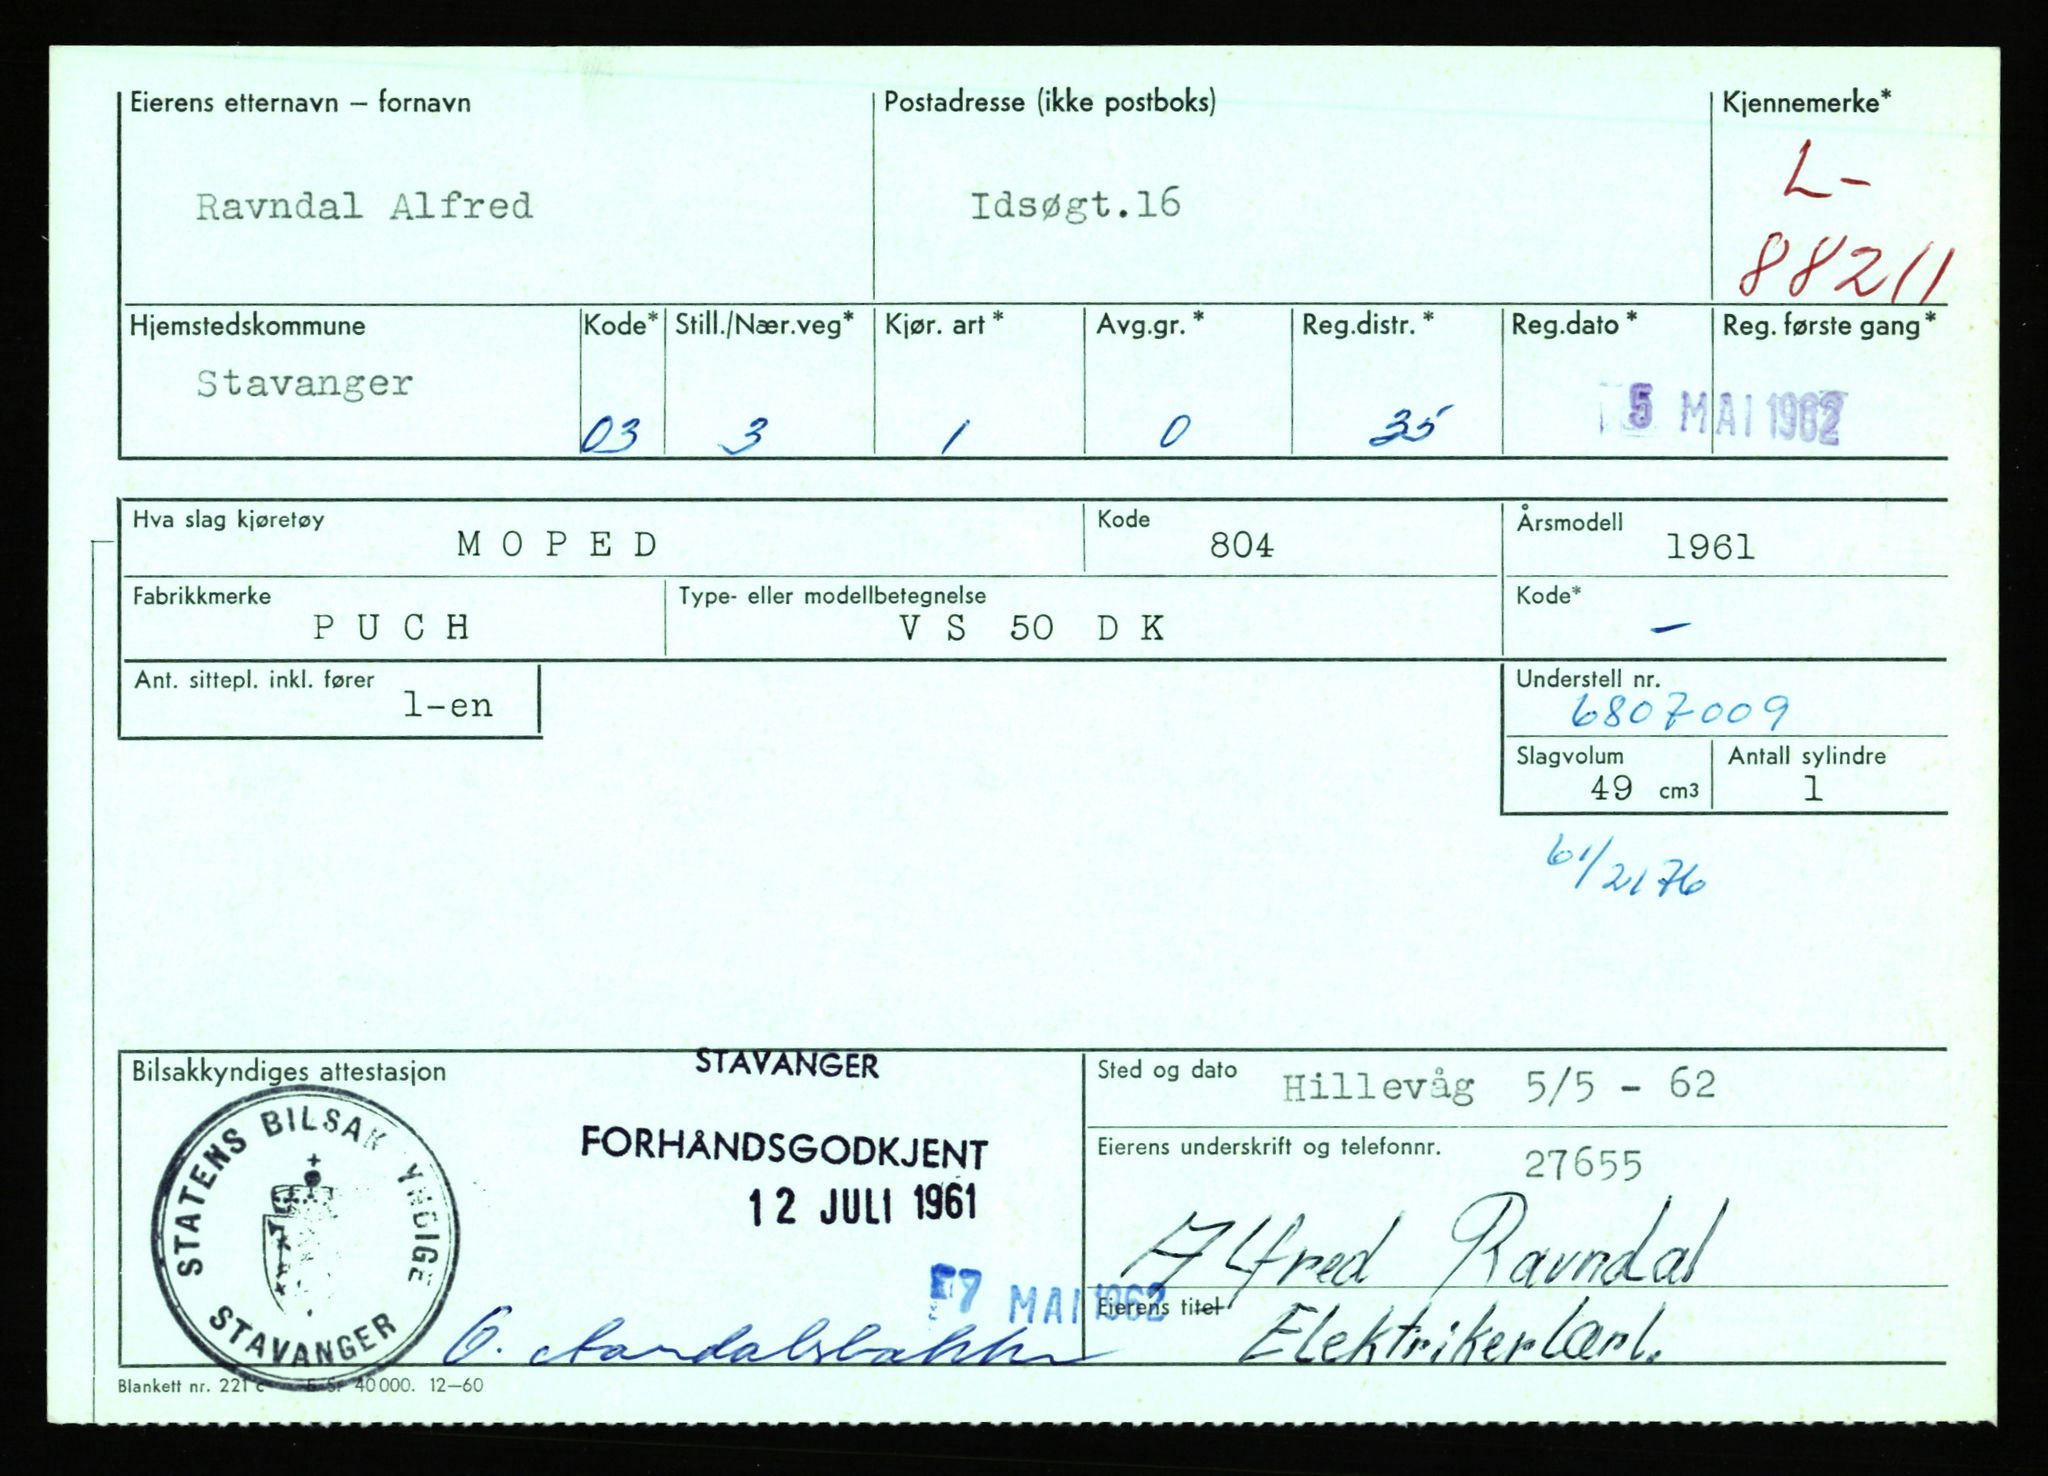 Eierens etternavn – fornavn
Postadresse (ikke postboks)
Kjennemerke*
Ravndal Alfred
Idsøgt.16
L-
88211
Hjemstedskommune
Kode*
Still./Nær.veg*
Kjør. art*
Avg.gr.*
Reg.distr.*
Reg.dato*
Reg. første gang*
Stavanger
03
3
1
0
35
5 MAI 1962
Hva slag kjøretøy
M O P E D
Kode
804
Årsmodell
1961
Fabrikkmerke
P U C H
Type- eller modellbetegnelse
V S 50 D K
Kode*
–
Ant. sittepl. inkl. fører
1-en
Understell nr.
6807009
Slagvolum
49 cm3
Antall sylindre
1
61/2176
Bilsakkyndiges attestasjon
STATENS BILSAK YNDIGE
STAVANGER
STAVANGER
FORHÅNDSGODKJENT
12 JULI 1961
7 MAI 1962
Sted og dato
Hillevåg 5/5 - 62
Eierens underskrift og telefonnr.
27655
Alfred Ravndal
Eierens titel
Elektrikerlærl.
Blankett nr. 221 c 40 000. 12–60